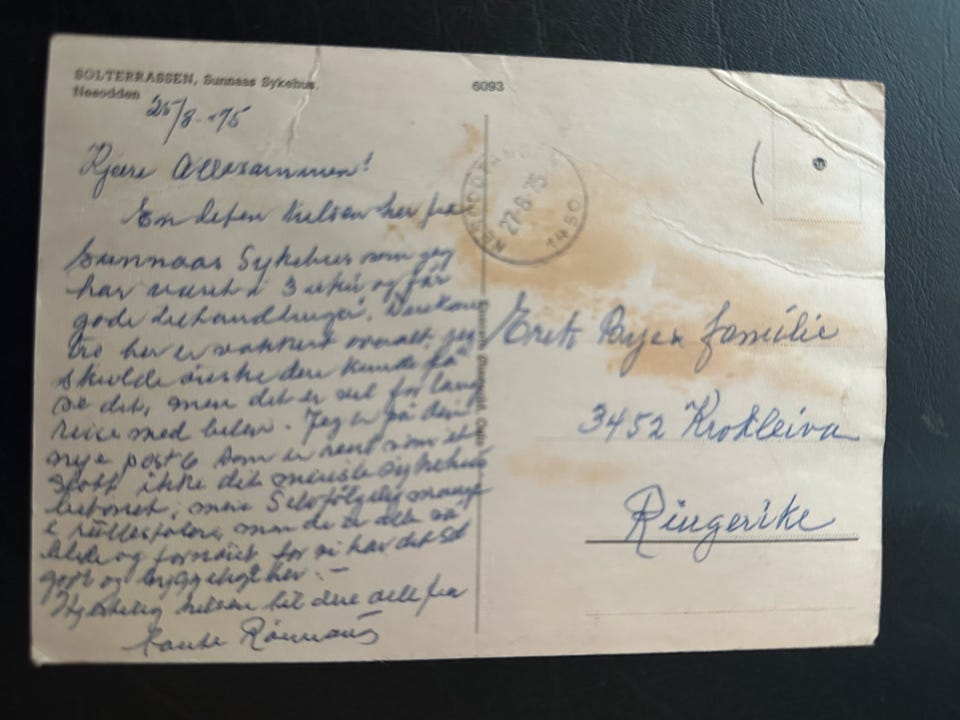 SOLTERRASSEN, Sunnaas Sykehus.
Nesodden
6093
25/8-75
Kjære Allesammen!
En liten hilsen her fra
Sunnaas Sykehus som jeg
har vært i 3 uker og får
gode behandlinger. Dere kan
tro her er vakkert overalt, jeg
skulde ønske dere kunde få
se det, men det er vel for lang
reise med bilen. Jeg er på den
nye post 6 som er rent som et
slott ikke det minste sykehus
betonet, men Selvfølgelig mange
i rullestoler, men de er alle så
blide og fornøiet for vi har det så
godt og hyggelig her.-
Hjertelig hilsen til dere alle fra
Tante
NESODDTANGEN
27-8-75
1450
familie
3452 Krokleiva
Ringerike